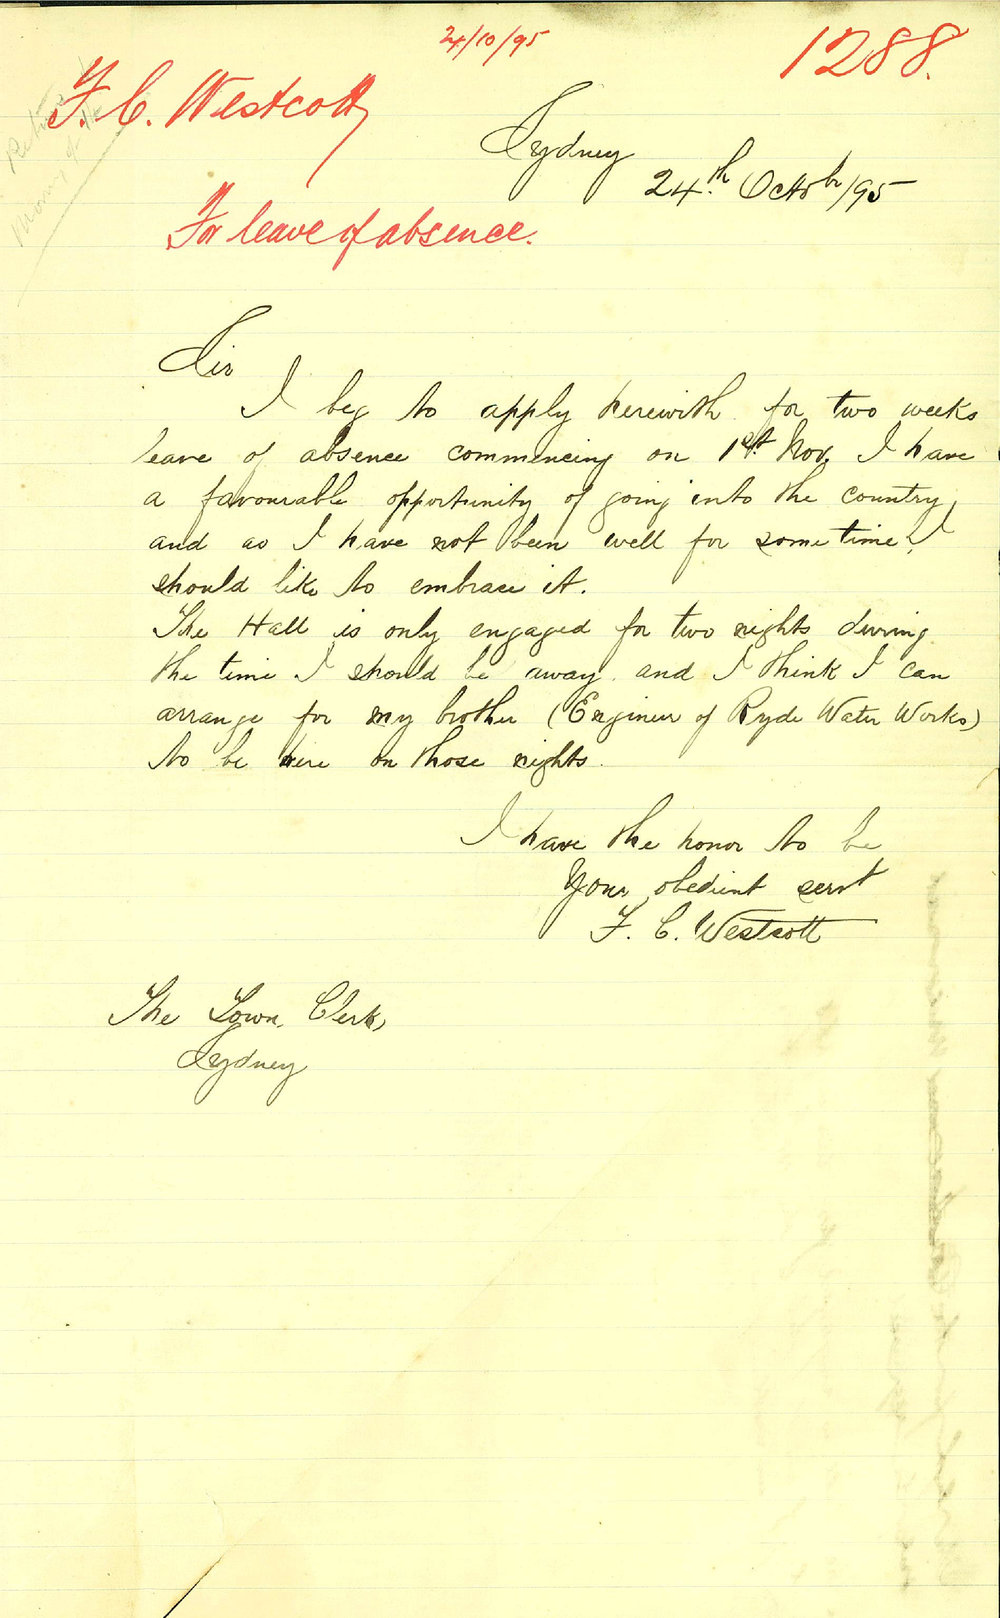 24/10/95
1288.
F. C. Westcott
For leave of absence.
Sydney
24th Octobr/95
Sir
I beg to apply herewith for two weeks
leave of absence commencing on 1st Nov. I have
a favourable opportunity of going into the country,
and as I have not been well for some time I
should like to embrace it.
The Hall is only engaged for two nights during
the time I should be away and I think I can
arrange for my brother (Engineer of Ryde Water Works)
to be here on those nights.
I have the honor to be
Your obedient servt
F. C. Westcott
The Town Clerk,
Sydney